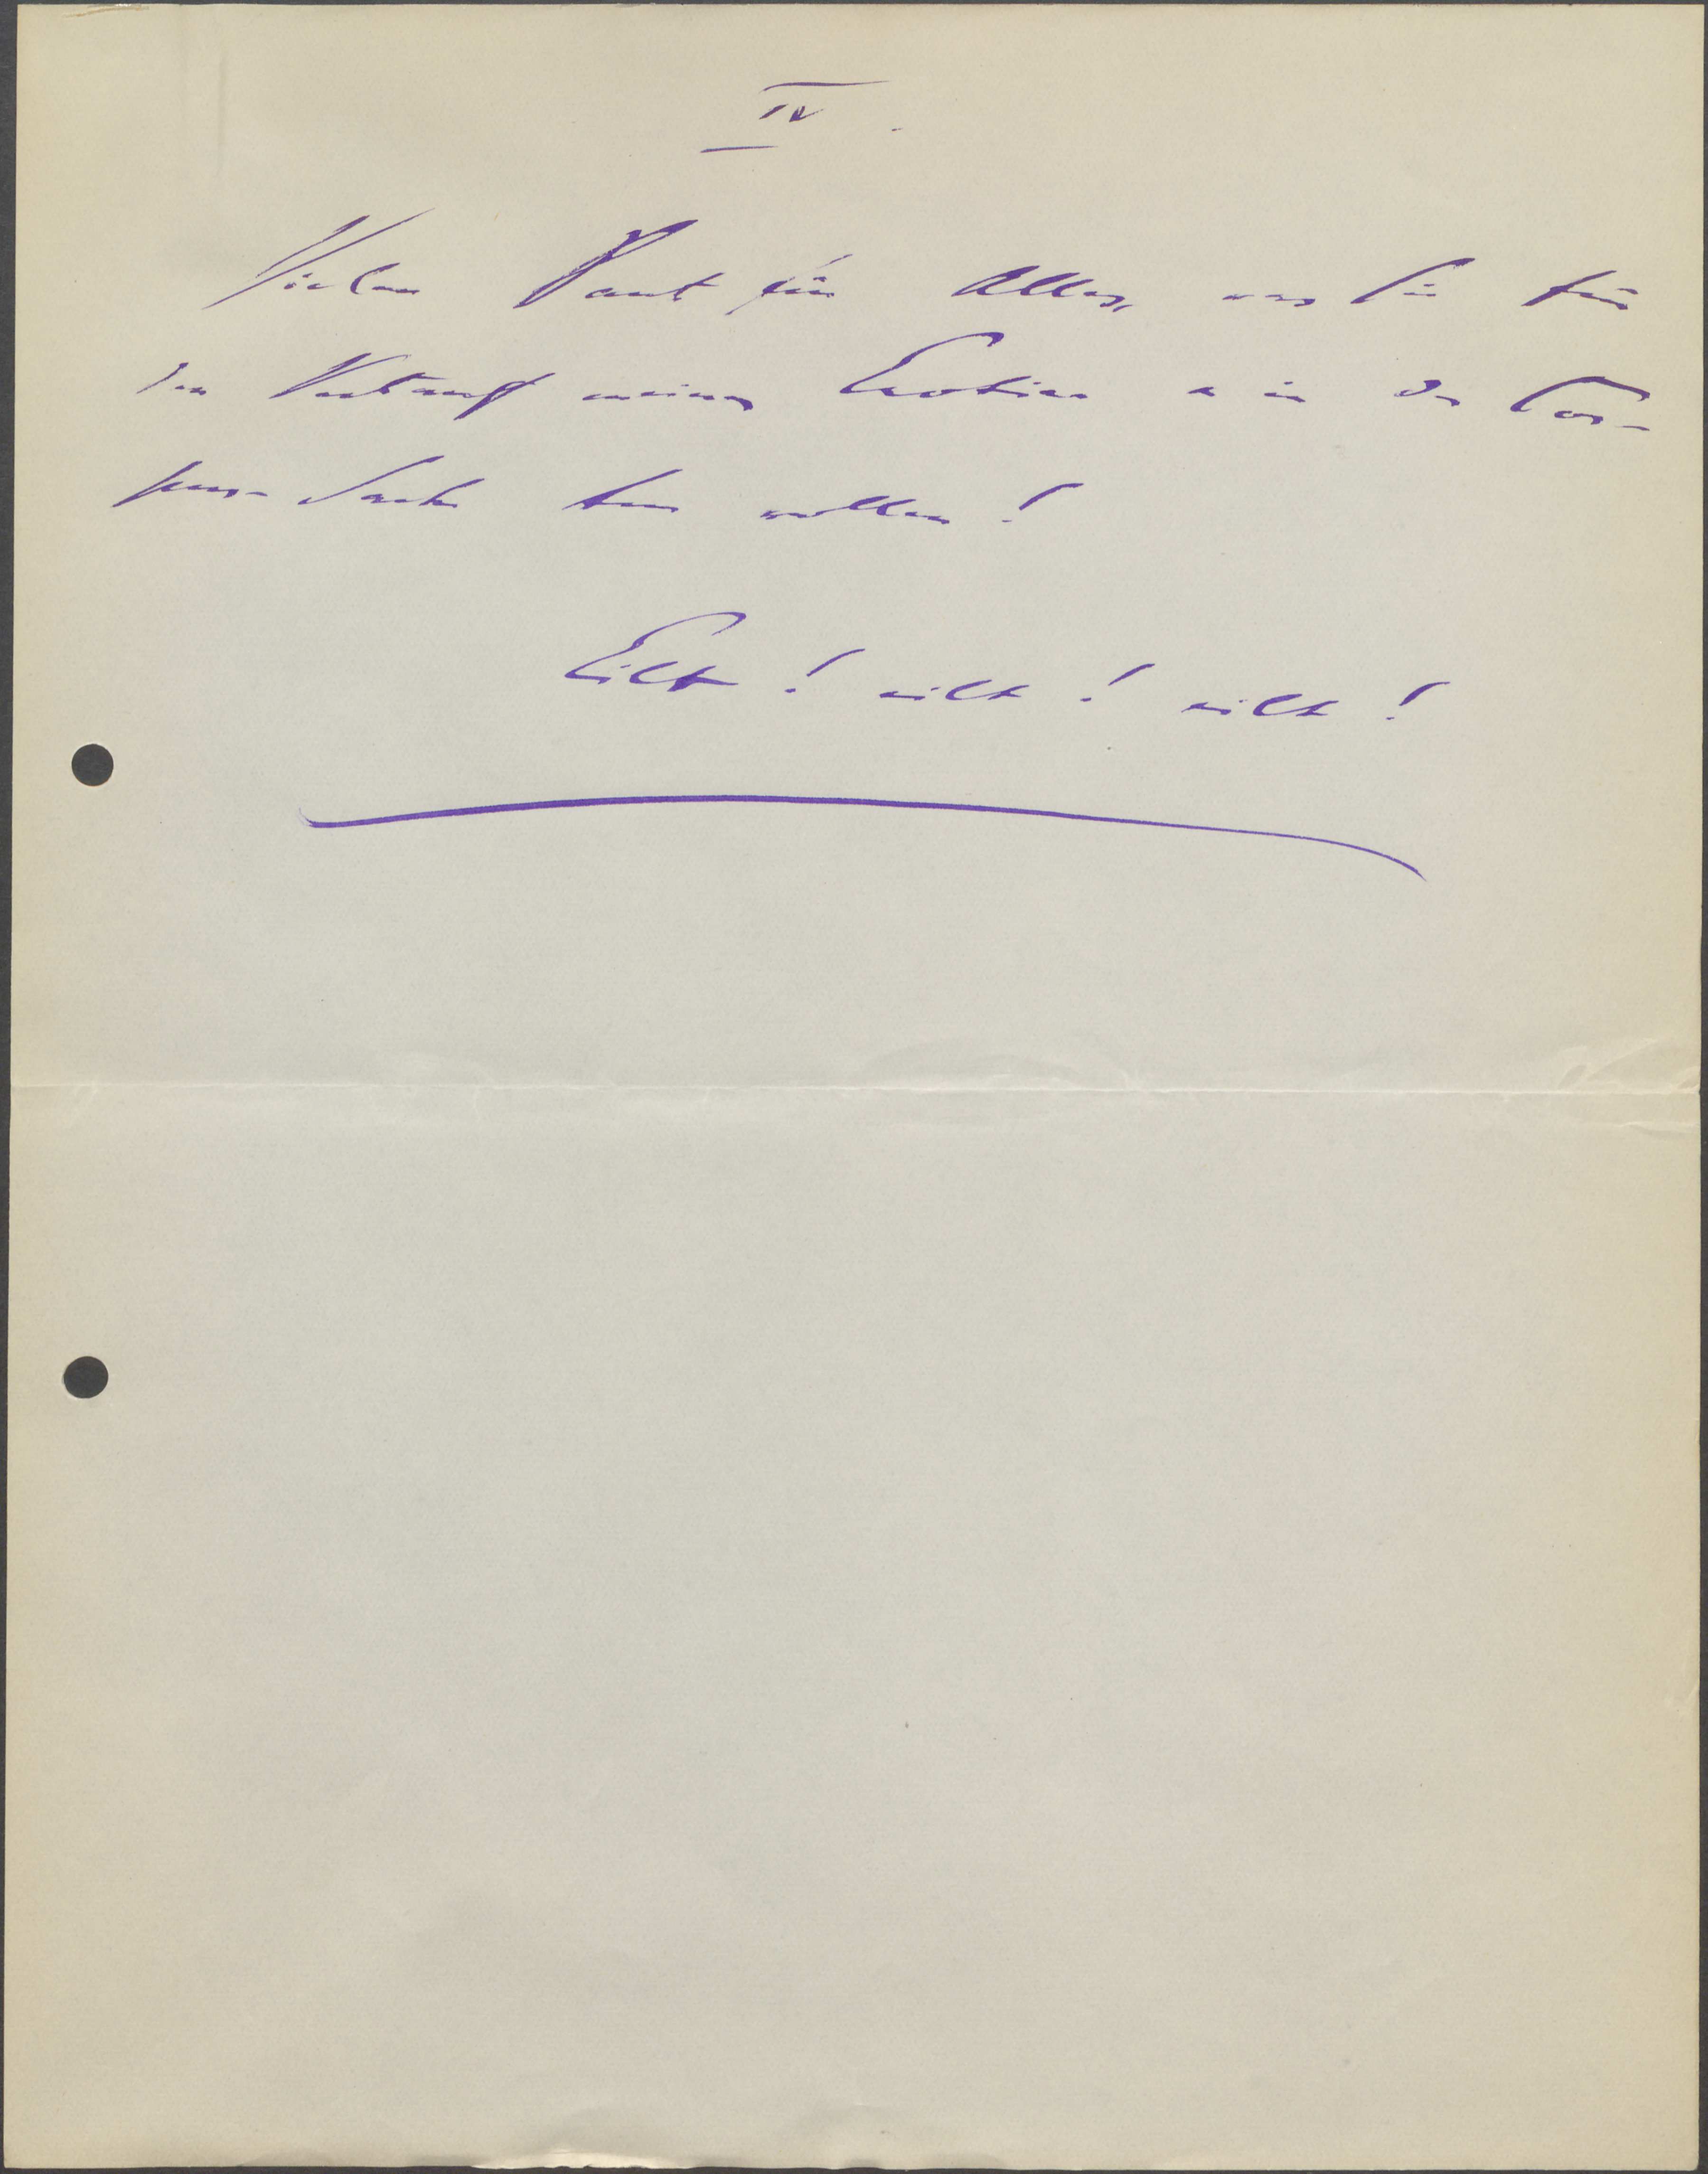 IV.
Vielen Dank für Alles, was Sie für
den Verkauf meiner Exotica u in der
Sache tun wollen!
Eilt! eilt! eilt!